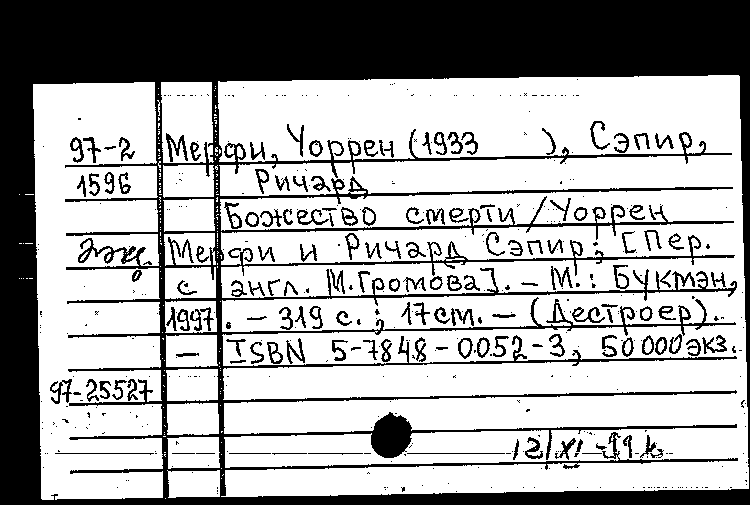 97-2 Мерфи, Уоррен (1933 ), Сэпир,
1596 Ричард
Божество смерти / Уоррен
2 экз. Мерфи и Ричард Сэпир; [Пер.
с англ. М. Громова]. - М.: Букмэн,
1997. - 319 с.; 17 см. - (Дестроер).
- ISBN 5-7848-0052-3, 50000 экз.
97-25527
12/XI -99 к